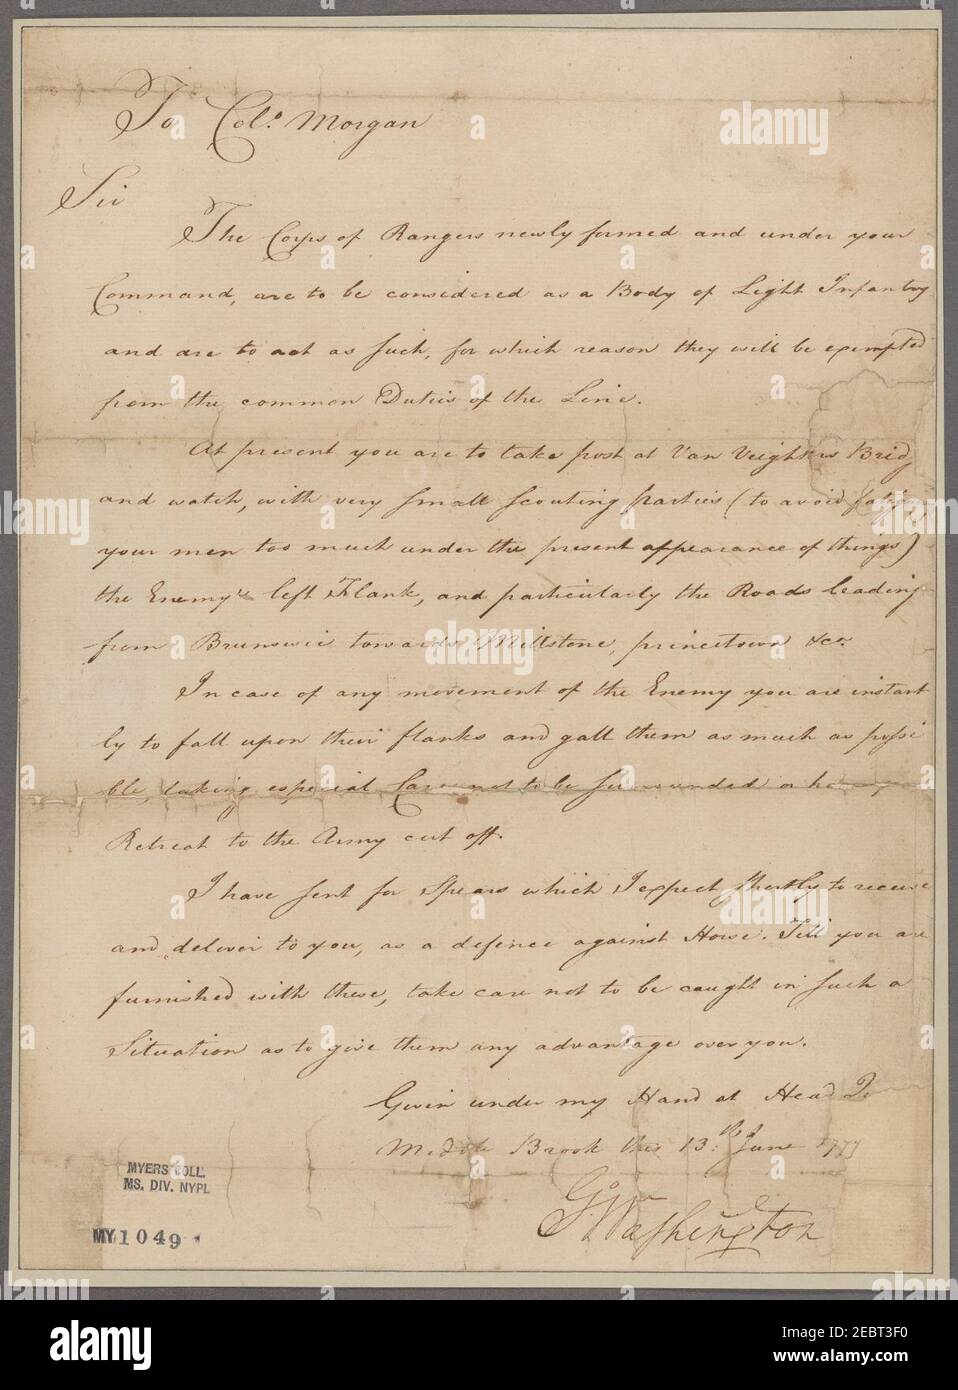 To Col.o Morgan
Sir
The Corps of Rangers newly formed and under your
Command, are to be considered as a Body of Light Infantry
and are to act as such, for which reason they will be exempted
from the common Duties of the Line.
At present you are to take post at Van Veighters Bridg
and watch, with very small scouting parties (to avoid
your men too much under the present appearance of things)
the Enemy's left Flank, and particularly the Roads leading
from Brunswic towards Millstone, princetown &ca
In case of any movement of the Enemy you are instant
ly to fall upon their flanks and gall them as much as possi
ble, taking especial Care not to be surrounded or
Retreat to the Army cut off.
I have sent for Spears which I expect shortly to receive
and deliver to you, as a defence against Horse. Till you are
furnished with these, take care not to be caught in such a
Situation as to give them any advantage over you.
Given under my Hand at Head Q
Middle Brook this 13.th of June 1777
Go Washington
MYERS COLL.
MS. DIV. NYPL
MY 1049
alamy
Image ID: 2EBT3F0
www.alamy.com